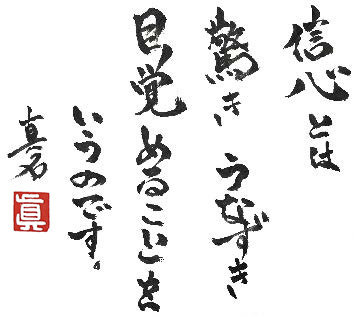 信心とは
驚き うなずき
目覚めることを
いうのです。
真
眞